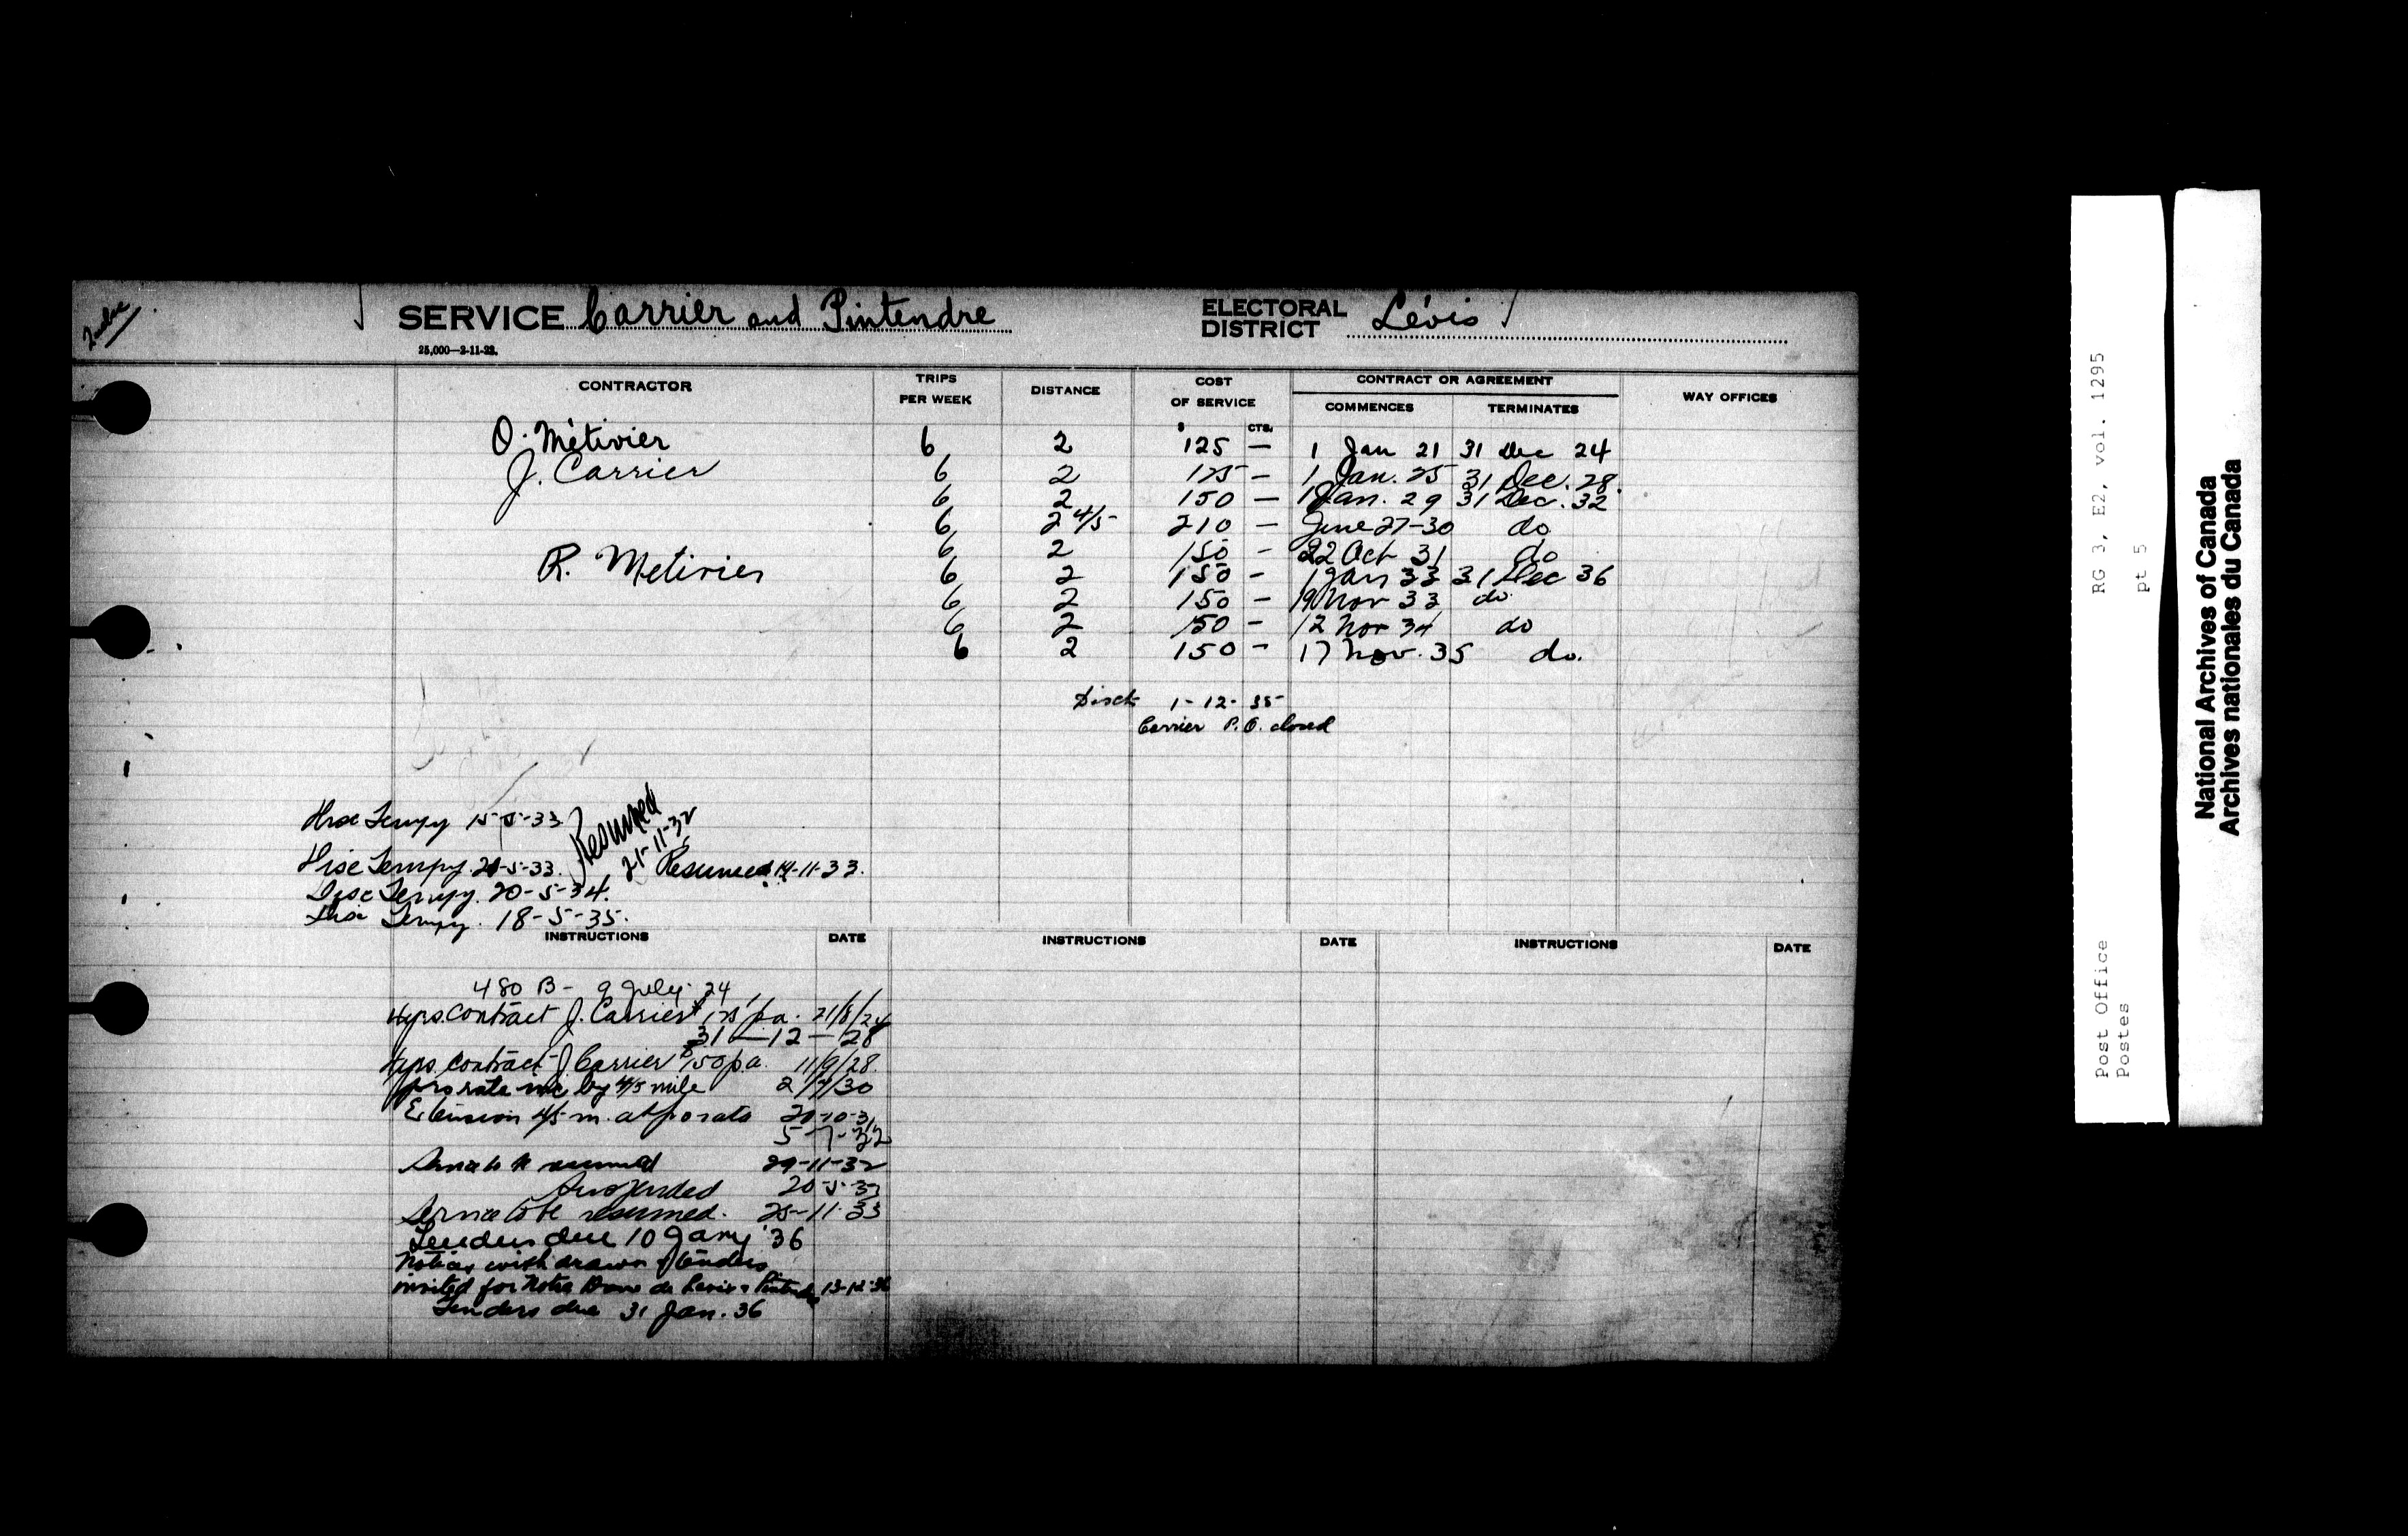 SERVICE Carrier and Pintendre ELECTORAL DISTRICT Lévis
25,000—2-11-22.
CONTRACTOR TRIPS PER WEEK DISTANCE COST OF SERVICE CONTRACT OR AGREEMENT WAY OFFICES
COMMENCES TERMINATES
$ CTS.
O. Métivier 6 2 125 — 1 Jan 21 31 Dec 24
J. Carrier 6 2 125 — 1 Jan. 25 31 Dec. 28.
6 2 150 — 1 Jan. 29 31 Dec. 32
6 2 4/5 210 — June 27-30 do
6 2 150 - 22 Oct 31 do
R. Metivier 6 2 150 - 1 Jan 33 31 Dec 36
6 2 150 — 19 Nov 33 do
6 2 150 - 12 Nov 34 do
6 2 150 - 17 Nov. 35 do.
Disct 1-12-35
Carrier P.O. closed
Disc Tempy 15-5-33
Resumed
21-11-32
Disc Tempy. 20-5-33. Resumed 14-11-33.
Disc Tempy. 20-5-34.
Disc Tempy. 18-5-35.
INSTRUCTIONS DATE INSTRUCTIONS DATE INSTRUCTIONS DATE
480 B - 9 July. 24
contract J. Carrier $125 p.a. 21/8/24
31—12—28
contract J Carrier $150 p.a. 11/9/28.
pro rata inc by 4/5 mile 2/7/30
Extension 4/5 m. at pro rata 20-10-31
5-7-32
Service to be resumed 29-11-32
Suspended 20-5-33
Service to be resumed. 25-11-33
Tenders due 10 Jany '36
Notices withdrawn & tenders
invited for Notre Dame de Levis & Pintendre
Tenders due 31 Jan. 36
RG 3, E2, vol. 1295
pt 5
Post Office
Postes
National Archives of Canada
Archives nationales du Canada